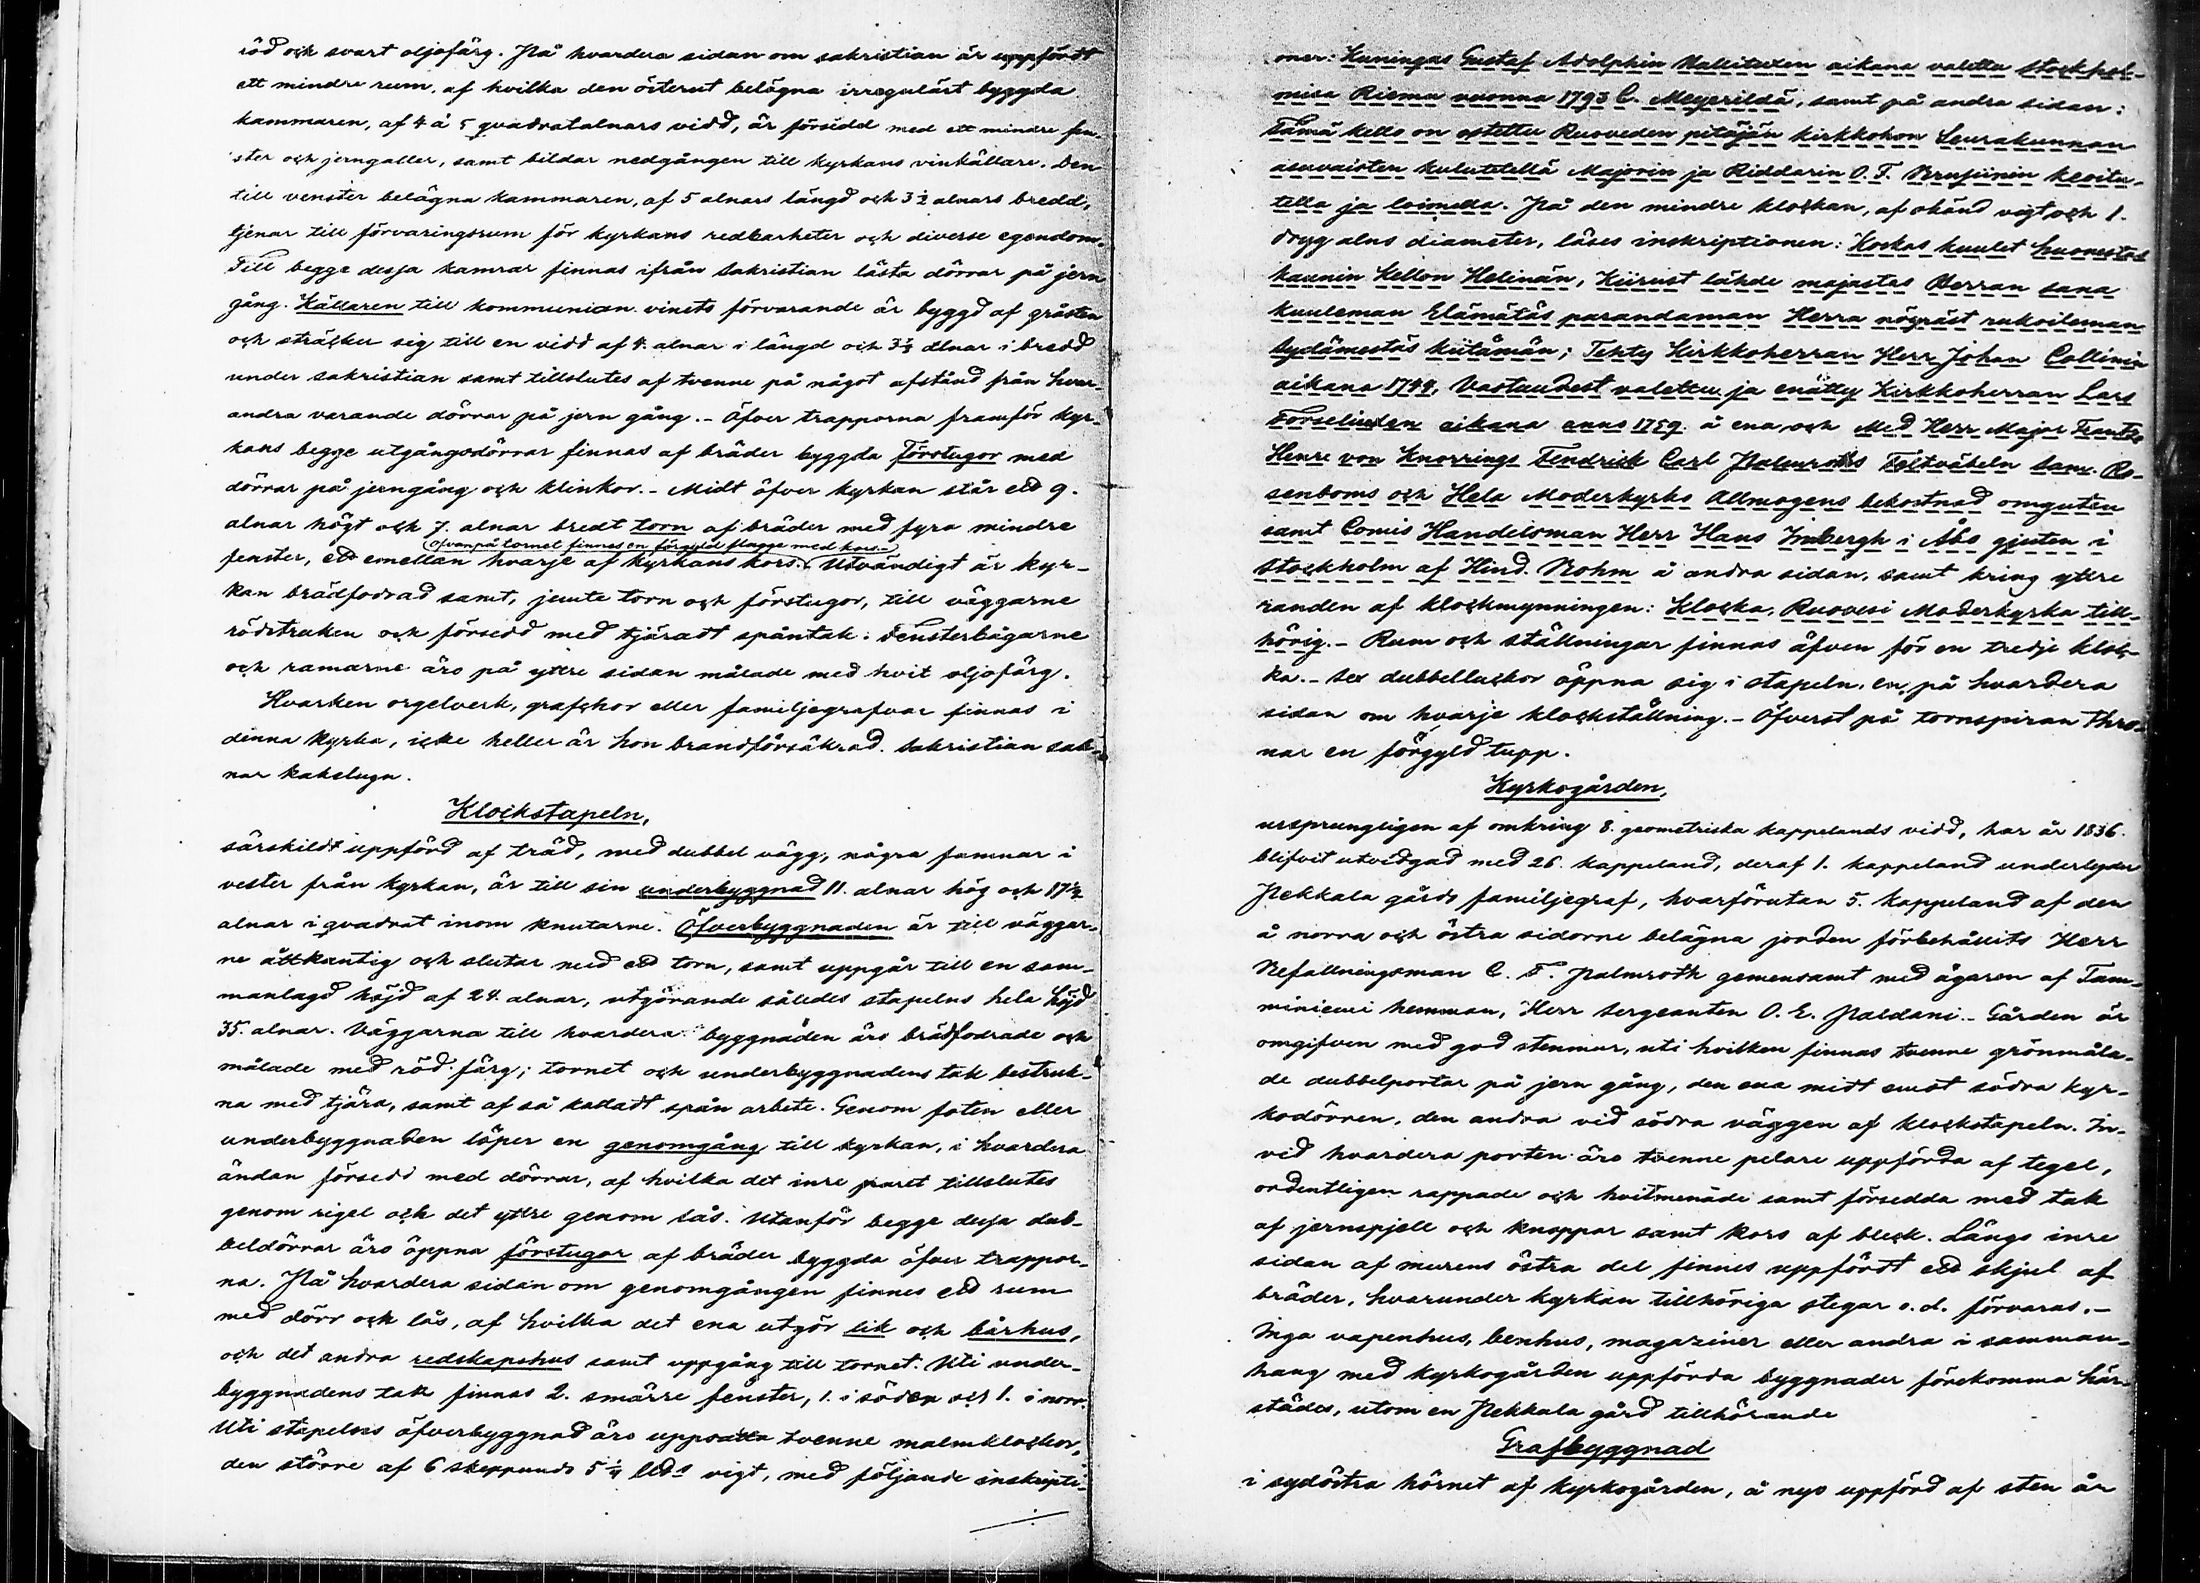 röd och svart oljofärg. På hvardera sidan om sakristian är uppfördt
ett mindre rum, af hvilka den österut belägna irregulärt byggda
kammaren, af 4 à 5 qvadratalnars vidd, är försedd med ett mindre fen-
ster och jerngaller, samt bildar nedgången till kyrkans vinkällare. Den
till venster belägna kammaren, af 5 alnars längd och 3½ alnars bredd,
tjenar till förvaringsrum för kyrkans redbarheter och diverse egendom.
Till begge dessa kamrar finnas ifrån sakristian låsta dörrar på jern
gång. Källaren till kommunion vinets förvarande är byggd af gråsten
och sträcker sig till en vidd af 4. alnar i längd och 3½ alnar i bredd
under sakristian samt tillslutes af tvenne på något afstånd från hvar-
andra varande dörrar på jern gång. - Öfver trapporna framför kyr-
kans begge utgångsdörrar finnas af bräder byggda förstugor med
dörrar på jerngång och klinkor. - Midt öfver kyrkan står ett 9.
alnar högt och 7. alnar bredt torn af bräder med fyra mindre
(ofvanpå tornet finnes en förgyld flagge med kors.)
fenster, ett emellan hvarje af kyrkans kors. Utvändigt är kyr-
kan brädfodrad samt, jemte torn och förstugor, till väggarne
rödstruken och försedd med tjäradt spåntak. Fensterbågarne
och ramarne äro på yttre sidan målade med hvit oljofärg.
Hvarken orgelverk, grafchor eller familjegrafvar finnas i
denna kyrka, icke heller är hon brandförsäkrad. Sakristian sak-
nar kakelugn.
Klockstapeln,
särskildt uppförd af träd, med dubbel vägg, några famnar i
vester från kyrkan, är till sin underbyggnad 11. alnar hög och 17½
alnar i qvadrat inom knutarne. Öfverbyggnaden är till väggar-
ne åttkantig och slutar med ett torn, samt uppgår till en sam-
manlagd höjd af 24. alnar, utgörande således stapelns hela höjd
35. alnar. Väggarna till hvardera byggnaden äro brädfodrade och
målade med röd färg; tornet och underbyggnadens tak bestruk-
na med tjära, samt af så kalladt spån arbete. Genom foten eller
underbyggnaden löper en genomgång till kyrkan, i hvardera
ändan försedd med dörrar, af hvilka det inre paret tillslutes
genom rigel och det yttre genom lås. Utanför begge dessa dub-
beldörrar äro öppna förstugor af bräder byggda öfver trappor-
na. På hvardera sidan om genomgången finnes ett rum
med dörr och lås, af hvilka det ena utgör lik och bårhus,
och det andra redskapshus samt uppgång till tornet. Uti under-
byggnadens tak finnas 2. smärre fenster, 1. i söder och 1. i norr.
Uti stapelns öfverbyggnad äro uppsatta tvenne malmklockor,
den större af 6 skeppunds 5¼ vigt, med följande inskripti-
oner: Kuningas Gustaf Adolphin Hallituxen aikana valettu Stockhol-
misa Riemu vuonna 1793 C. Meyerildä, samt på andra sidan:
Tämä kello on ostettu Ruoveden pitäjän kirkkohon Seurakunnan
asuvaisten kulutetellä Majorin ja Riddarin O. F. hoitu-
tella ja toimella. På den mindre klockan, af okänd vigt och 1.
dryg alns diameter, läses inskriptionen: Koskas kuulet huonestas
kaunin Kellon Helinän, Kiirust lähde majastas Herran sana
kuuleman Elämätäs parandaman Herra nöyräst rukoileman
sydämestäs kiitämän; Tehty Kirkkoherran Herr Johan Collinin
aikana 1744, Vastaudest valettu ja enätty Kirkkoherran Lars
Forselinden aikana anno 1759. å ena och Med Herr Major Frants
Henre von Knorrings Fendrick Carl Palmroths Fältväbeln Sam. Ro-
senboms och Hela Moderkyrko Allmogens bekostnad omguten
samt Comis Handelsman Herr Hans Imbergh i Åbo gjuten i
Stockholm af Hind. Rohm å andra sidan, samt kring yttre
randen af klockmynningen: Klocka, Ruovesi Moderkyrka till-
hörig. - Rum och ställningar finnas äfven för en tredje kloc-
ka. - Sex dubbelluckor öppna sig i stapeln, en på hvardera
sidan om hvarje klockställning. - Öfverst på tornspiran thro-
nar en förgyld tupp.
Kyrkogården,
ursprungligen af omkring 8. geometriska kappelands vidd, har år 1836.
blifvit utvidgad med 26. kappeland, deraf 1. kappeland underlyder
Pekkala gårds familjegraf, hvarförutan 5. kappeland af den
å norra och östra sidorne belägna jorden förbehållits Herr
Befallningsman C. F. Palmroth gemensamt med ägaren af Tam-
miniemi hemman, Herr Sergeanten O. E. Paldani. - Gården är
omgifven med god stenmur, uti hvilken finnas tvenne grönmåla-
de dubbelportar på jern gång, den ena midt emot södra kyr-
kodörren, den andra vid södra väggen af klockstapeln. In-
vid hvardera porten äro tvenne pelare uppförda af tegel,
ordentligen rappade och hvitmenade samt försedda med tak
af jernspjell och knoppar samt kors af bleck. Längs inre
sidan af murens östra del finnes uppfördt ett skjul af
bräder, hvarunder kyrkan tillhöriga stegar o. d. förvaras. -
Inga vapenhus, benhus, magaziner eller andra i samman-
hang med kyrkogården uppförda byggnader förekomma här-
städes, utom en Pekkala gård tillhörande
Grafbyggnad
i sydöstra hörnet af kyrkogården, å nyo uppförd af sten år